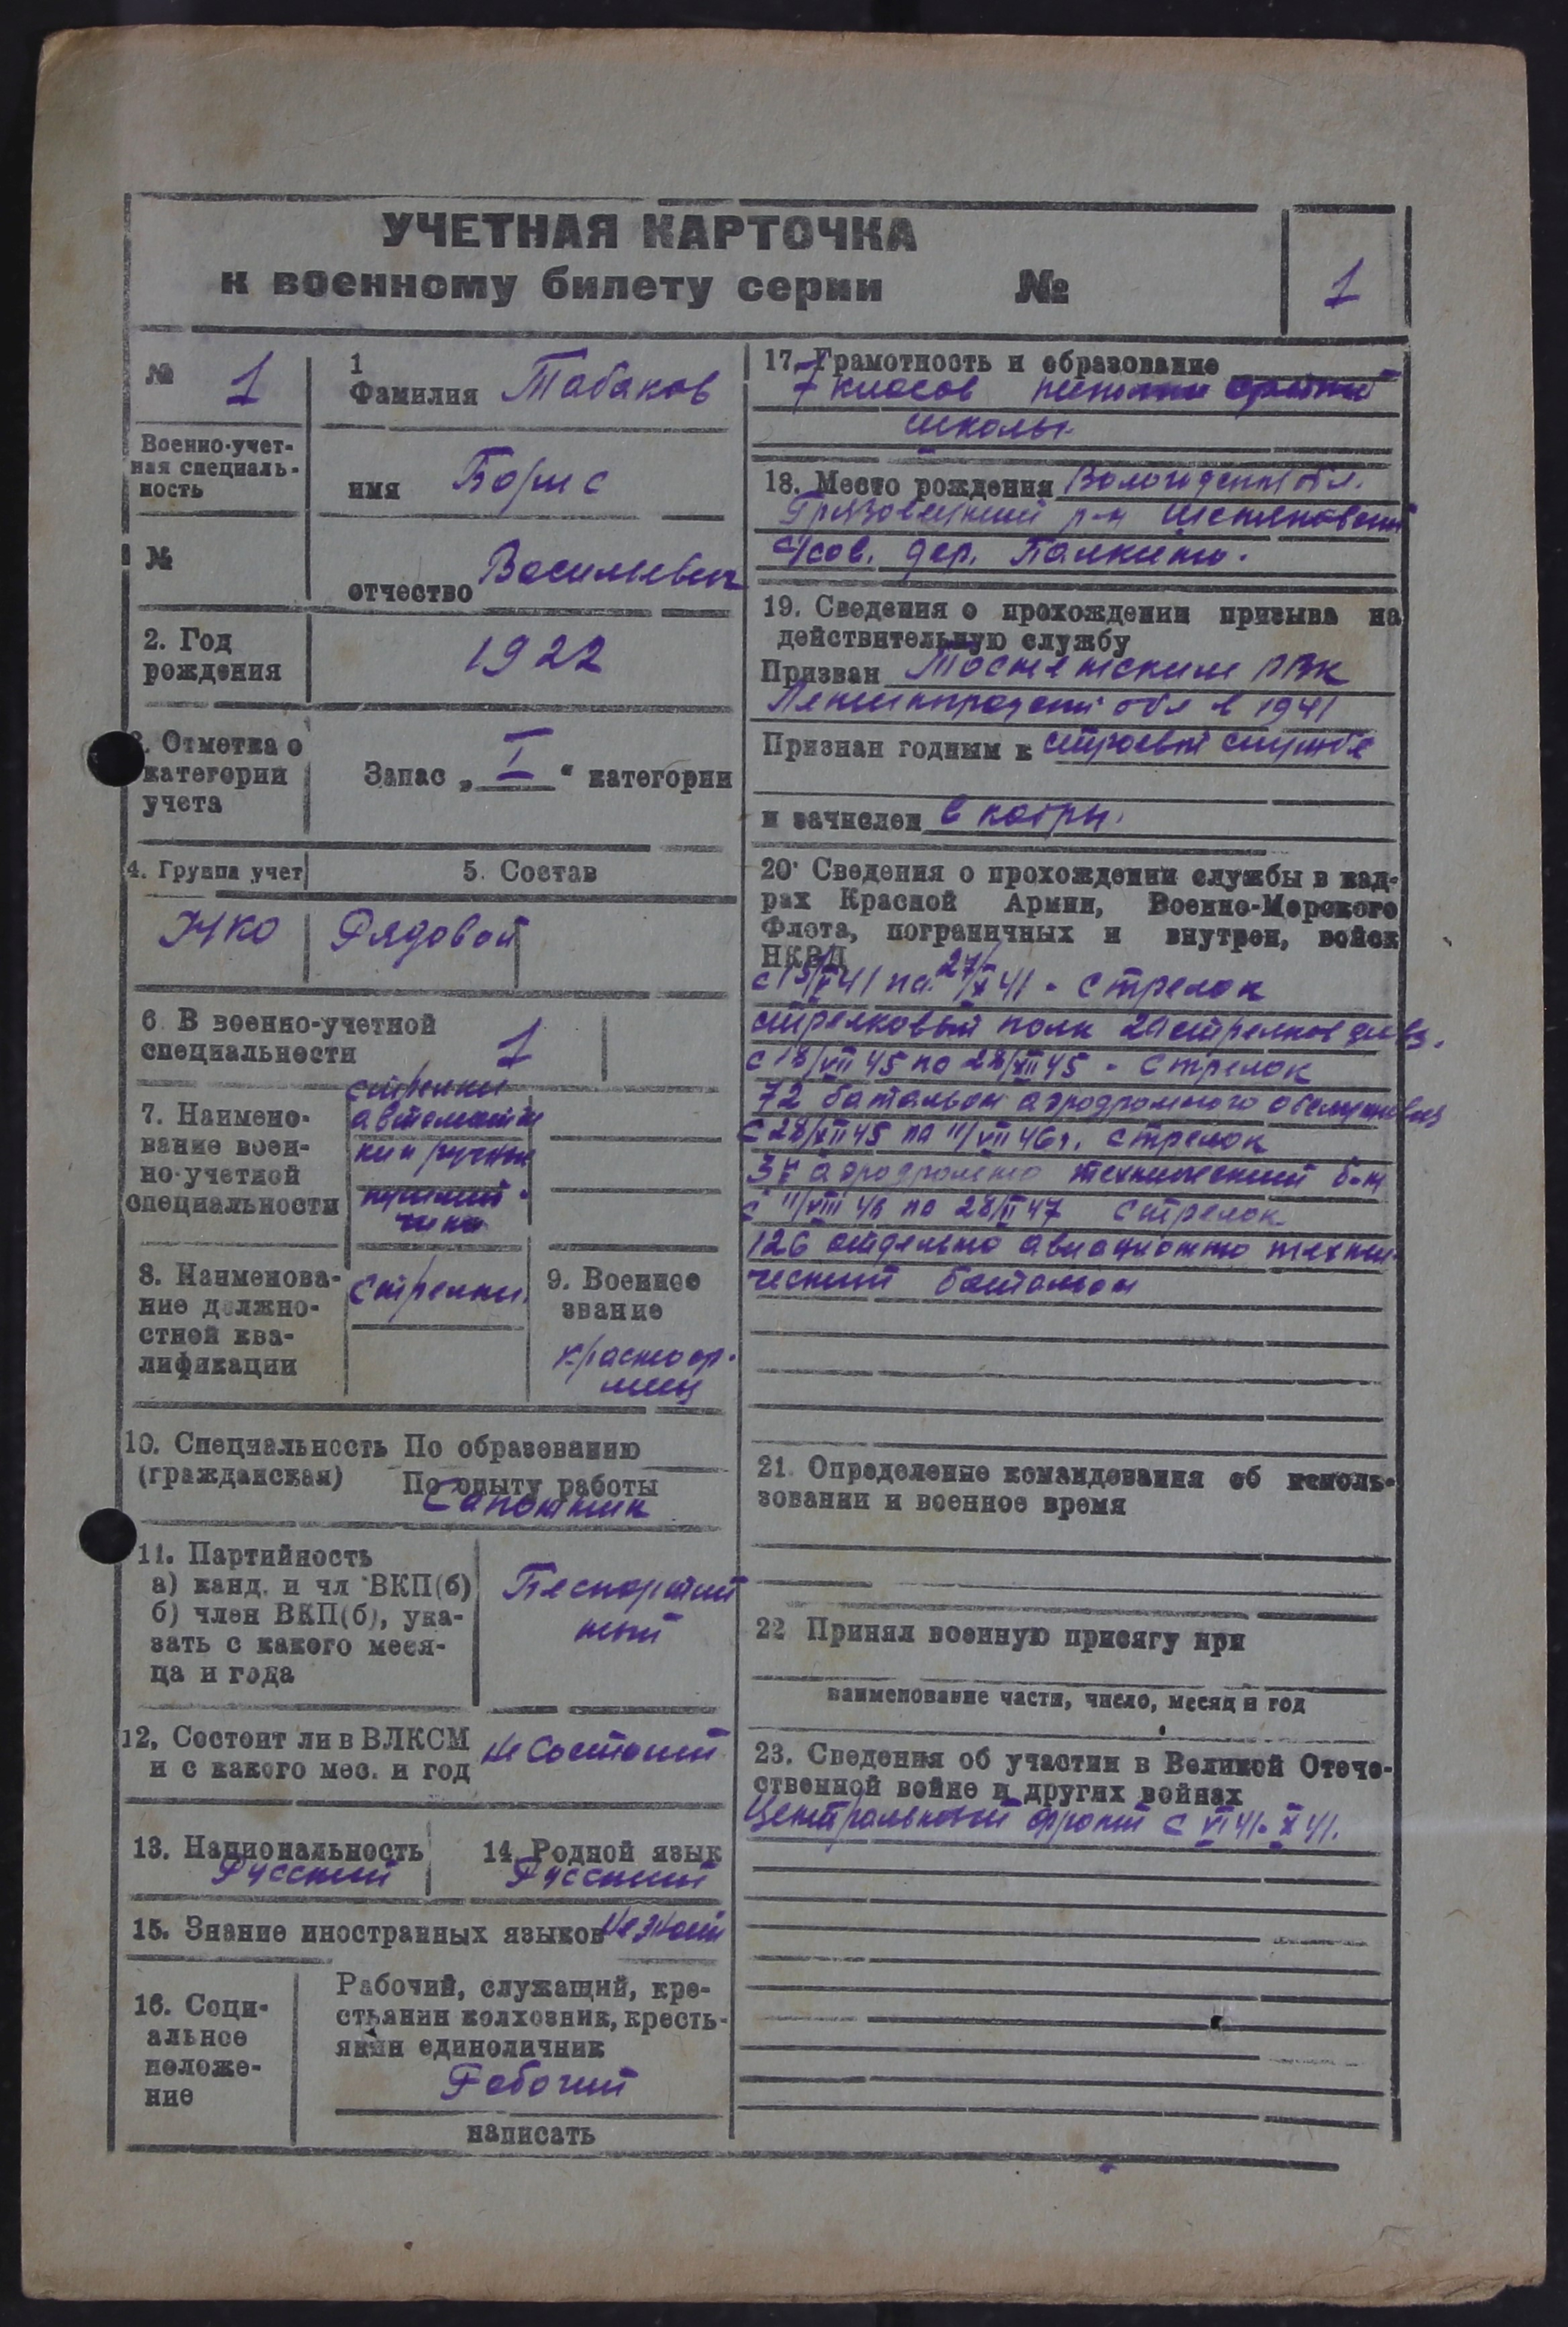 УЧЕТНАЯ КАРТОЧКА
к военному билету серии №
1
№ 1
Военно-учет-
ная специаль-
ность
№
1
Фамилия Табаков
имя Борис
отчество Васильевич
2. Год
рождения
1922
3. Отметка о
категории
учета
Запас „ I " категории
4. Группа учет
НКО
5. Состав
Рядовой
6. В военно-учетной
специальности
1
7. Наимено-
вание воен-
но-учетной
специальности
стрелки
автоматчи
ки и ручные
пулемет-
чики
8. Наименова-
ние должно-
стной ква-
лификации
Стрелки.
9. Военное
звание
красноар-
меец
10. Специальность По образованию
(гражданская) По опыту работы
Сапожник
11. Партийность
а) канд. и чл ВКП(б)
б) член ВКП(б), ука-
зать с какого меся-
ца и года
Беспартий
ный
12, Состоит ли в ВЛКСМ
и с какого мес. и год
не состоит
13. Национальность
Русский
14. Родной язык
Русский
15. Знание иностранных языков не знает
16. Соци-
альное
положе-
ние
Рабочий, служащий, кре-
стьянин колхозник, кресть-
янин единоличник
Рабочий
написать
17. Грамотность и образование
7 класов средней
школы
18. Место рождения Вологодской обл.
Грязовецкий р-н
с/сов. дер. Палкино.
19. Сведения о прохождении призыва на
действительную службу
Призван РВК
Ленинградской обл в 1941
Признан годным к строевой службе
и зачислен в кадры.
20. Сведения о прохождении службы в кад-
рах Красной Армии, Военно-Морского
Флота, пограничных и внутрен, войск
НКВД
41 по 27/X 41 - стрелок
стрелковый полк стрелков див.
с 18/VII 45 по 28/XII 45 - стрелок
72 батальон аэродромного обслуживан
с 28/XII 45 по 11/VIII 46 г. стрелок
3й аэродромно технический б-н
с 11/VIII 46 по 28/II 47 стрелок
126 отдельно авиационно техни-
ческий батальон
21. Определение командования об исполь-
зовании и военное время
22 Принял военную присягу при
наименование части, число, месяц и год
23. Сведения об участии в Великой Отече-
ственной войне и других войнах
Центральный фронт с VI 41- X 41.